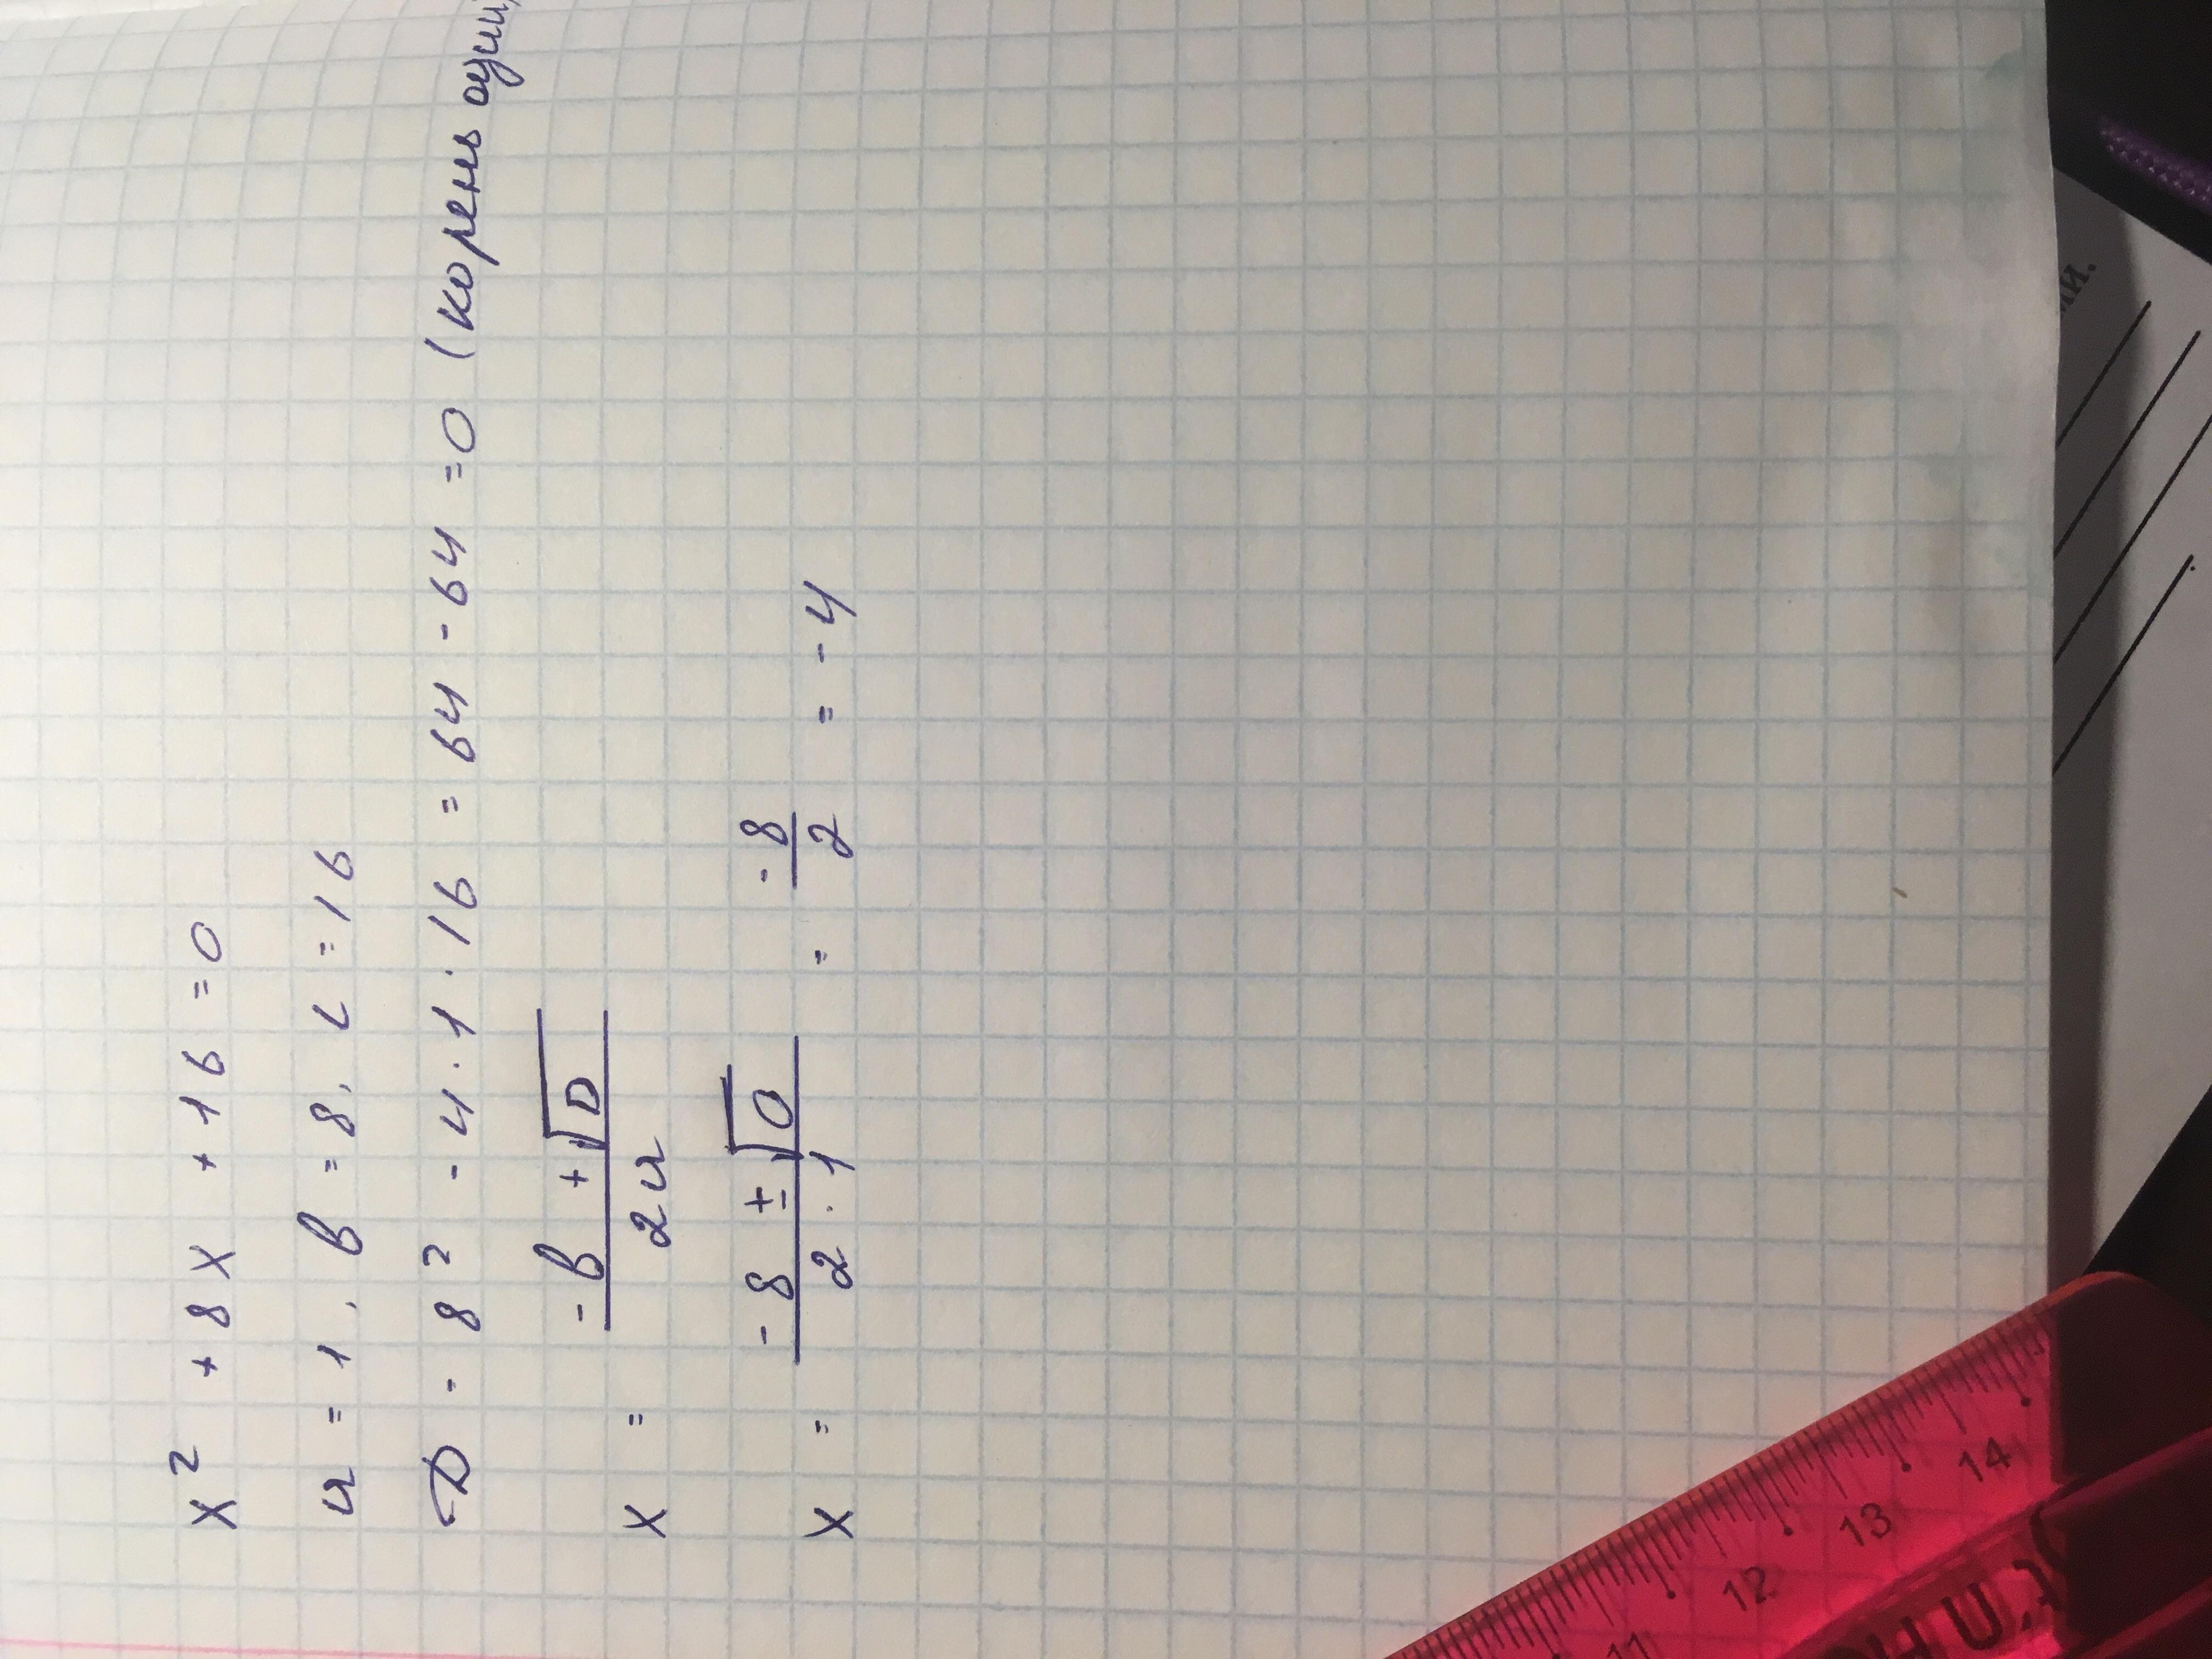 x² + 8x + 16 = 0
a = 1, b = 8, c = 16
D - 8² - 4 · 1 · 16 = 64 - 64 = 0 (корень один)
x = \frac{-b + \sqrt{D}}{2a}
x = \frac{-8 ± \sqrt{0}}{2 · 1} = \frac{-8}{2} = -4
11 12 13 14